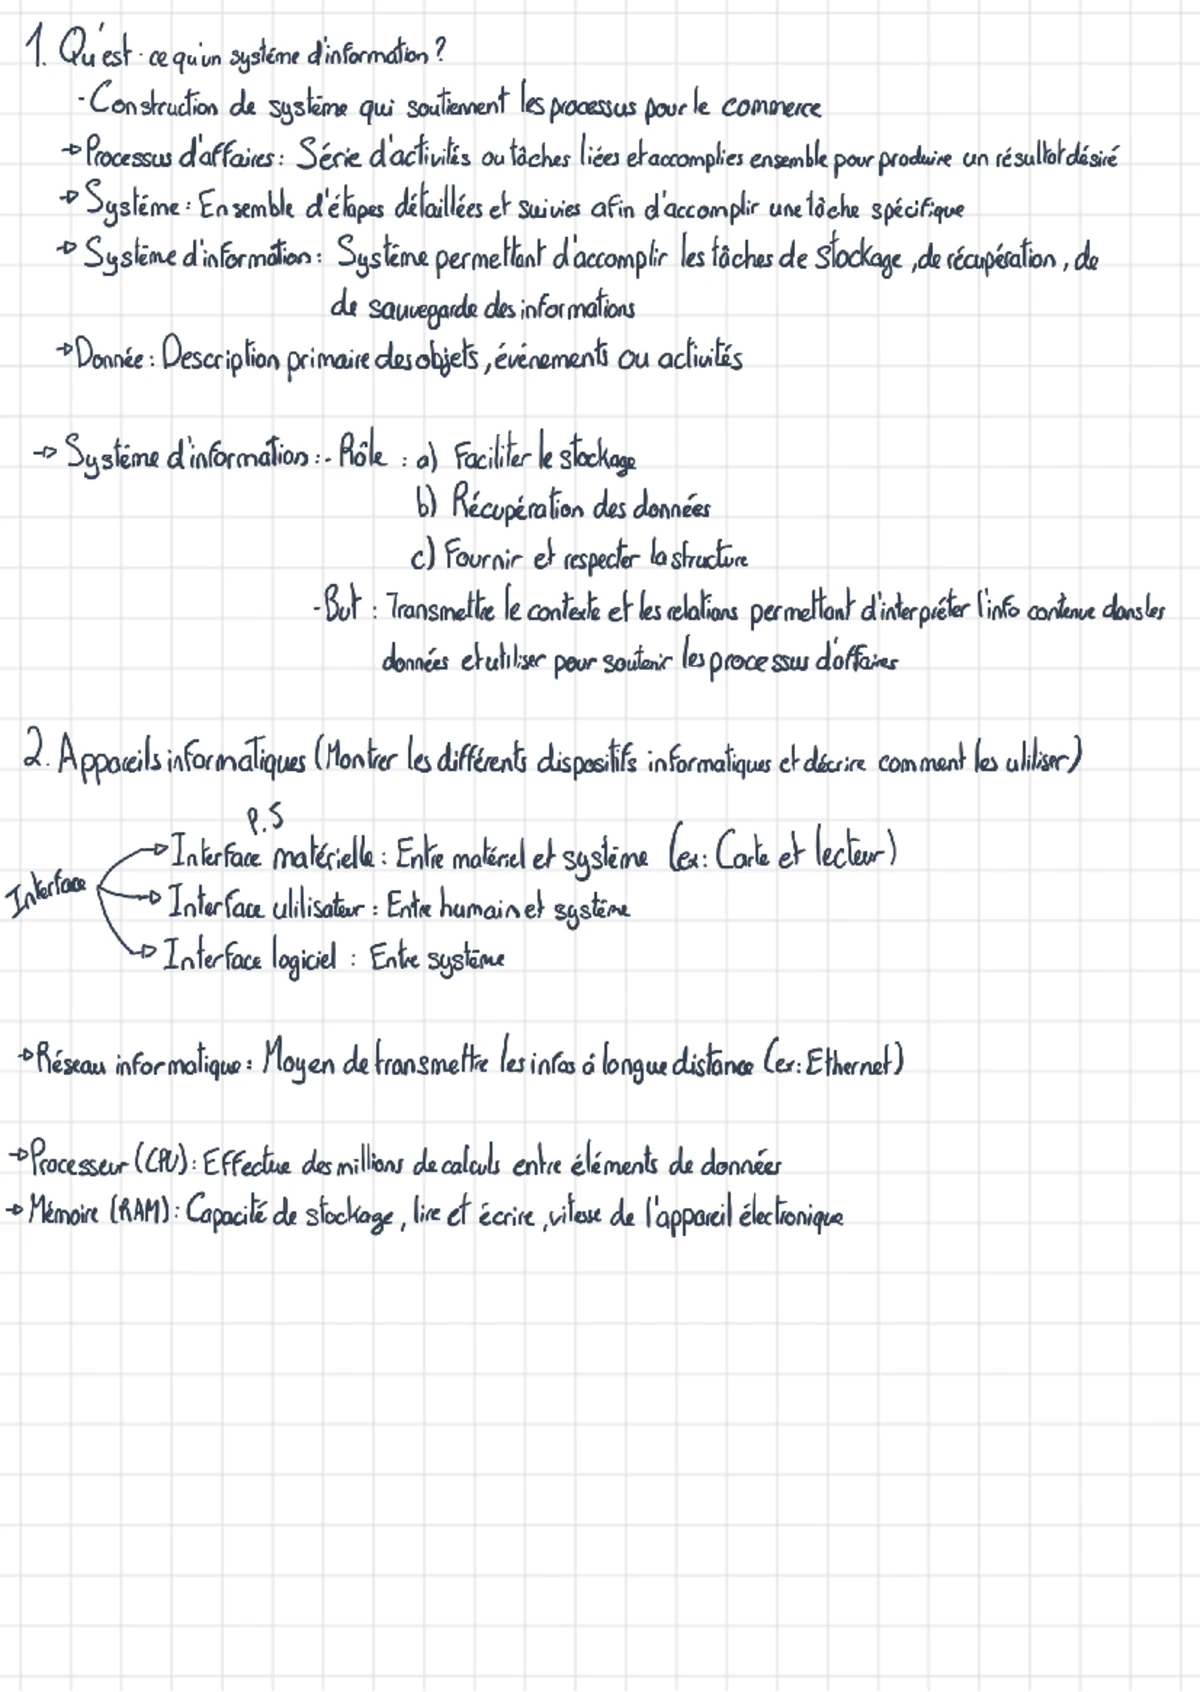 1. Qu'est-ce qu'un système d'information ?
- Construction de système qui soutiennent les processus pour le commerce
→ Processus d'affaires : Série d'activités ou tâches liées et accomplies ensemble pour produire un résultat désiré
→ Système : Ensemble d'étapes détaillées et suivies afin d'accomplir une tâche spécifique
→ Système d'information : Système permettant d'accomplir les tâches de stockage, de récupération, de
de sauvegarde des informations
→ Donnée : Description primaire des objets, événements ou activités
→ Système d'information : - Rôle : a) Faciliter le stockage
b) Récupération des données
c) Fournir et respecter la structure
- But : Transmettre le contexte et les relations permettant d'interpréter l'info contenue dans les
données et utiliser pour soutenir les processus d'affaires
2. Appareils informatiques (Montrer les différents dispositifs informatiques et décrire comment les utiliser)
P.5
→ Interface matérielle : Entre matériel et système (ex: Carte et lecteur)
Interface → Interface utilisateur : Entre humain et système
→ Interface logiciel : Entre système
→ Réseau informatique : Moyen de transmettre les infos à longue distance (ex: Ethernet)
→ Processeur (CPU) : Effectue des millions de calculs entre éléments de données
→ Mémoire (RAM) : Capacité de stockage, lire et écrire, vitesse de l'appareil électronique